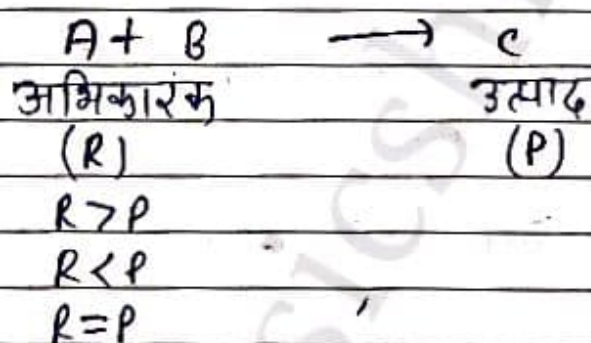 A + B ⟶ C
अभिकारक उत्पाद
(R) (P)
R > P
R < P
R = P